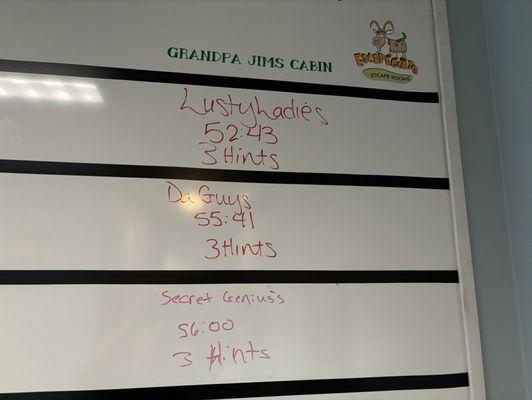 GRANDPA JIMS CABIN
ESCAPE ROOMS
LustyLadies
52:43
3 Hints
Da Guys
55:41
3 Hints
Secret Genius's
56:00
3 Hints